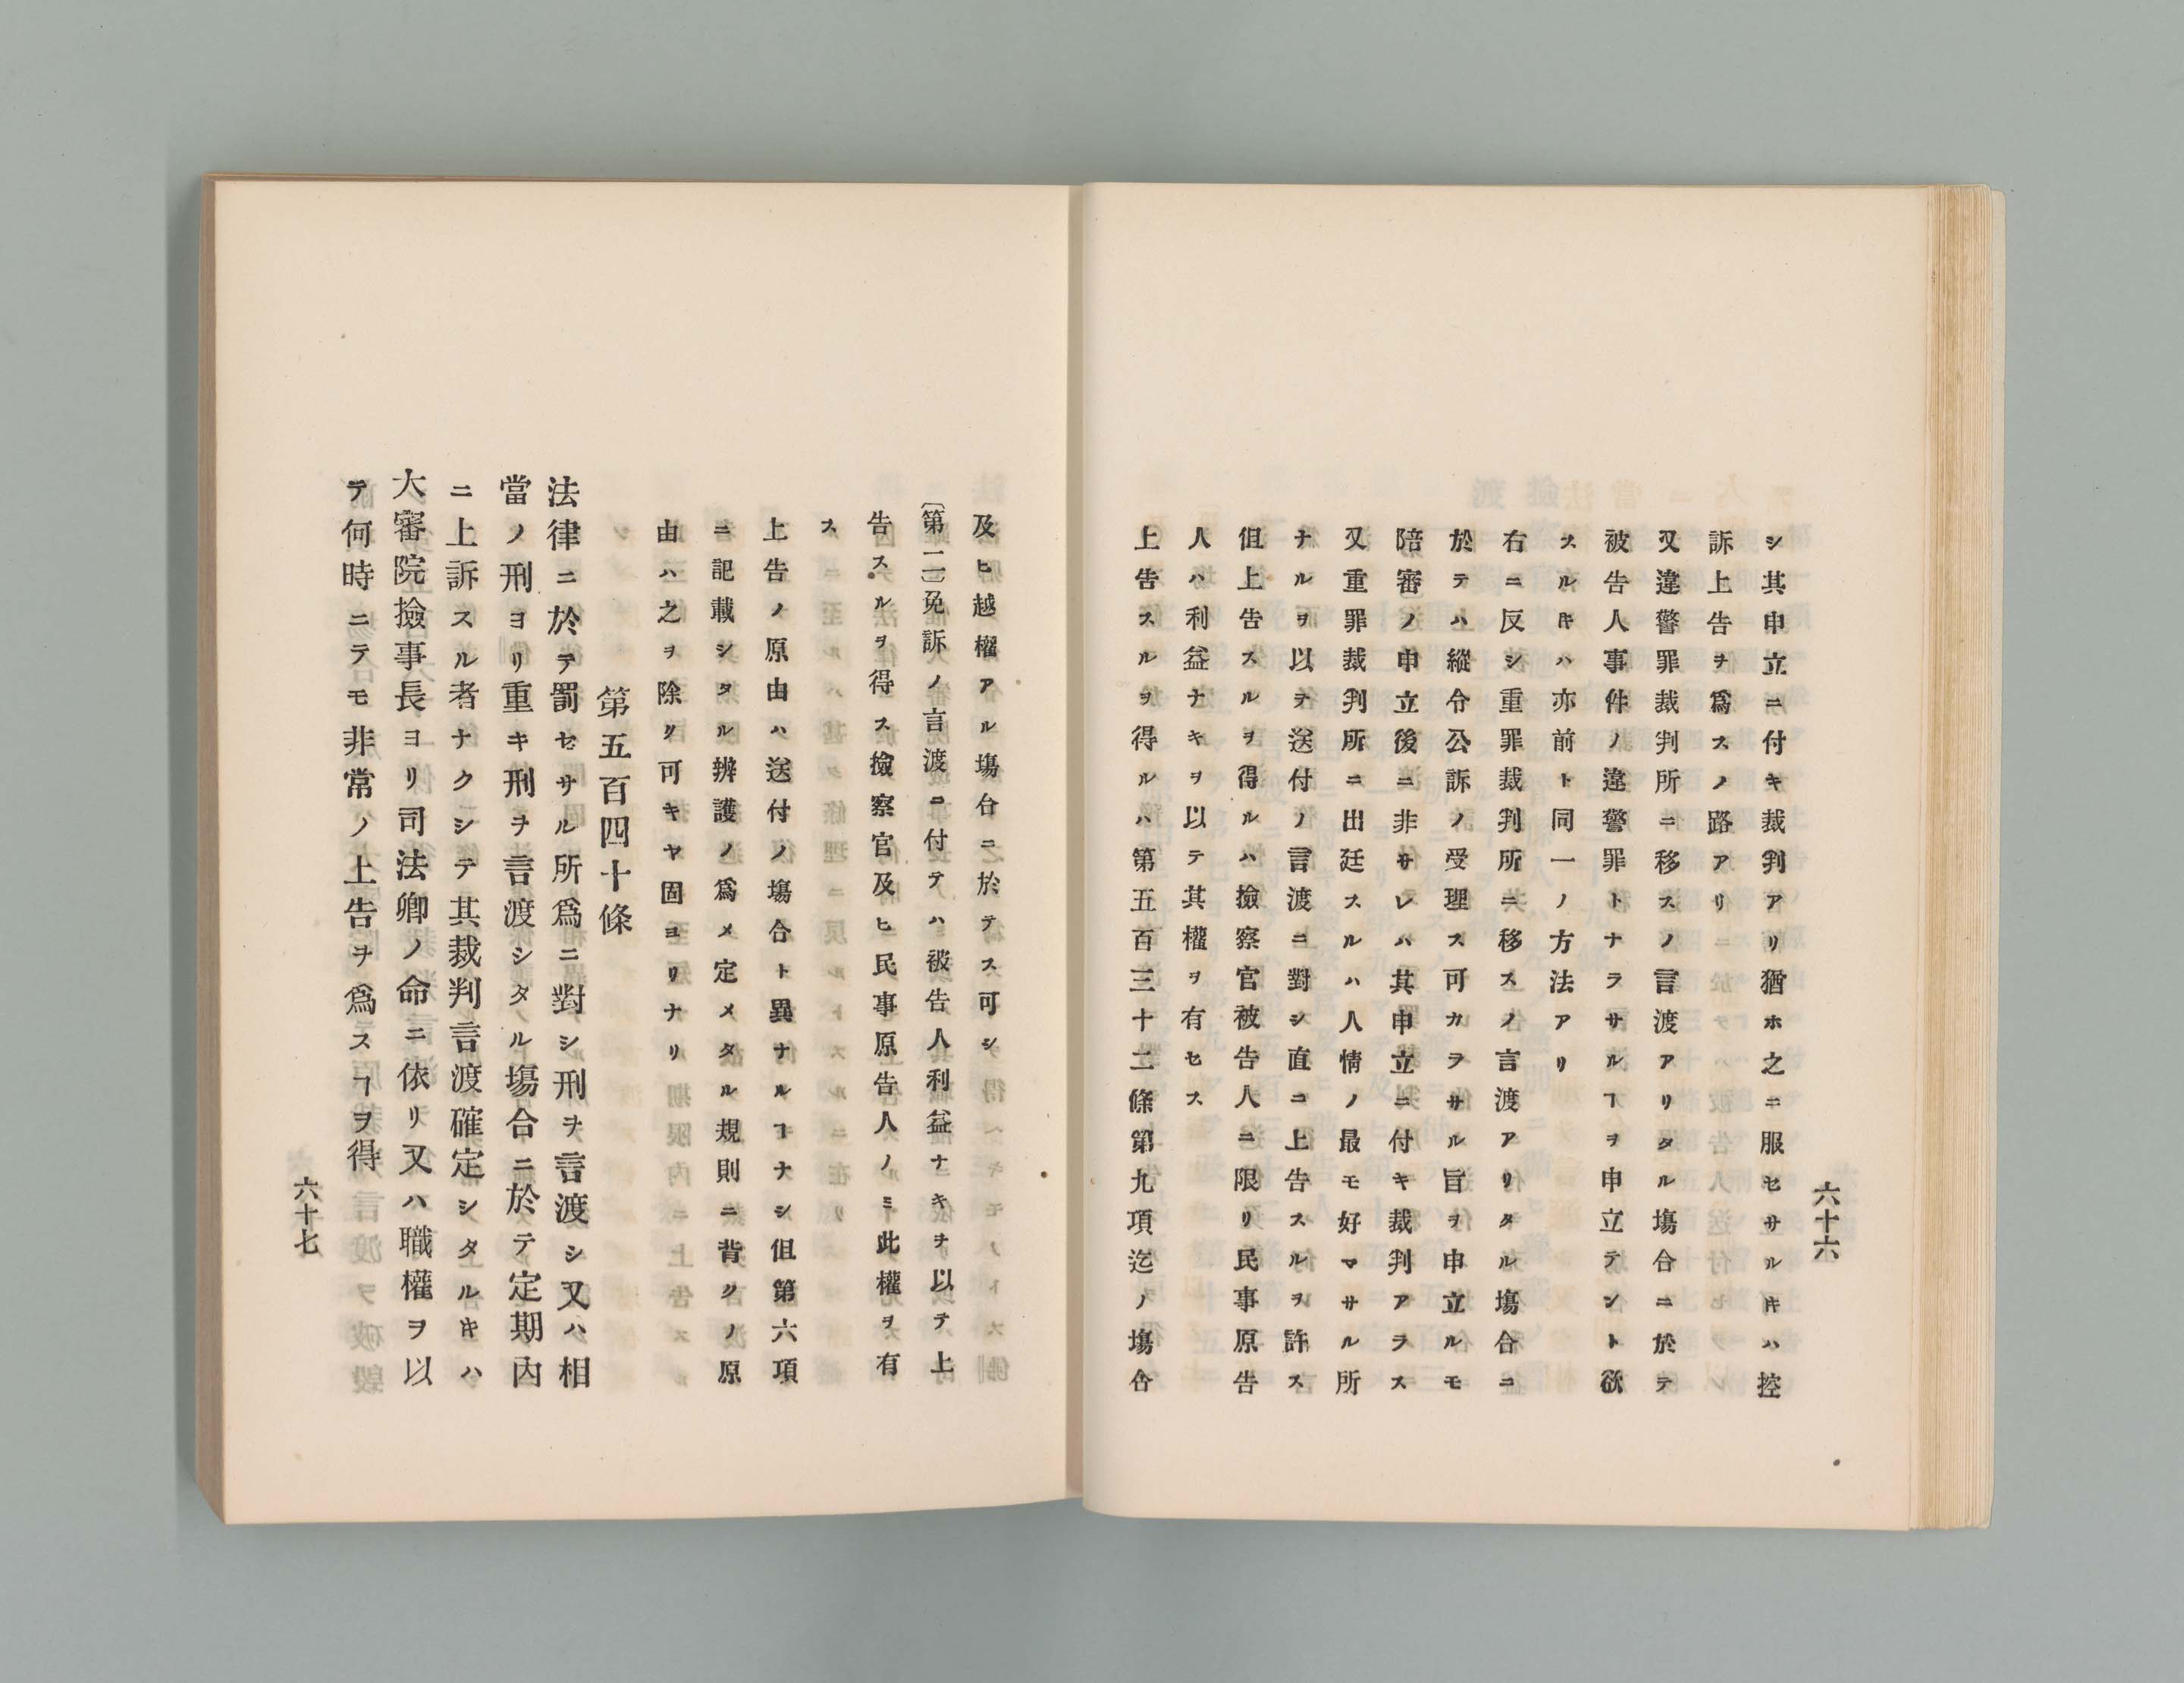 六十六
シ其申立ニ付キ裁判アリ猶ホ之ニ服セサルキハ控
訴上告ヲ爲スノ路アリ
又違警罪裁判所ニ移スノ言渡アリタル塲合ニ於テ
被告人事件ノ違警罪トナラサルヿヲ申立テント欲
スルキハ亦前ト同一ノ方法アリ
右ニ反シ重罪裁判所ニ移スノ言渡アリタル塲合ニ
於テハ縱令公訴ノ受理ス可カヲサル旨ヲ申立ルモ
陪審ノ申立後ニ非サレハ其申立ニ付キ裁判アヲス
又重罪裁判所ニ出廷スルハ人情ノ最モ好マサル所
ナルヲ以テ送付ノ言渡ニ對シ直ニ上告スルヲ許ス
但上告スルヲ得ルハ撿察官被告人ニ限リ民事原告
人ハ利益ナキヲ以テ其權ヲ有セス
上告スルヲ得ルハ第五百三十二條第九項迄ノ塲合
及ヒ越權アル塲合ニ於テス可シ
(第二)免訴ノ言渡ニ付テハ被告人利益ナキヲ以テ上
告スルヲ得ス撿察官及ヒ民事原告人ノミ此權ヲ有
ス
上告ノ原由ハ送付ノ塲合ト異ナルヿナシ但第六項
ニ記載シタル辨護ノ爲メ定メタル規則ニ背クノ原
由ハ之ヲ除ク可キヤ固ヨリナリ
第五百四十條
法律ニ於テ罰セサル所爲ニ對シ刑ヲ言渡シ又ハ相
當ノ刑ヨリ重キ刑ヲ言渡シタル塲合ニ於テ定期内
ニ上訴スル者ナクシテ其裁判言渡確定シタルキハ
大審院撿事長ヨリ司法卿ノ命ニ依リ又ハ職權ヲ以
テ何時ニテモ非常ノ上告ヲ爲スヿヲ得
六十七